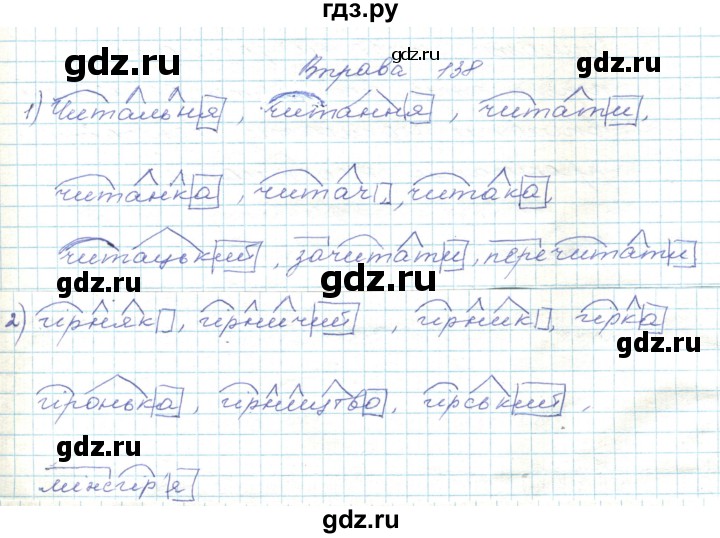 гдз.ру
gdz.ru gdz.ru gdz.ru
Вправа 138
1) Читальня, читання, читати,
gdz.ru gdz.ru
читанка, читач, читака,
читацький, зачитати, перечитати
gdz.ru
2) гірняк, гірничий, гірник, гірка
gdz.ru
гіронька, гірництво, гірський,
gdz.ru gdz.ru
міжгір'я
gdz.ru